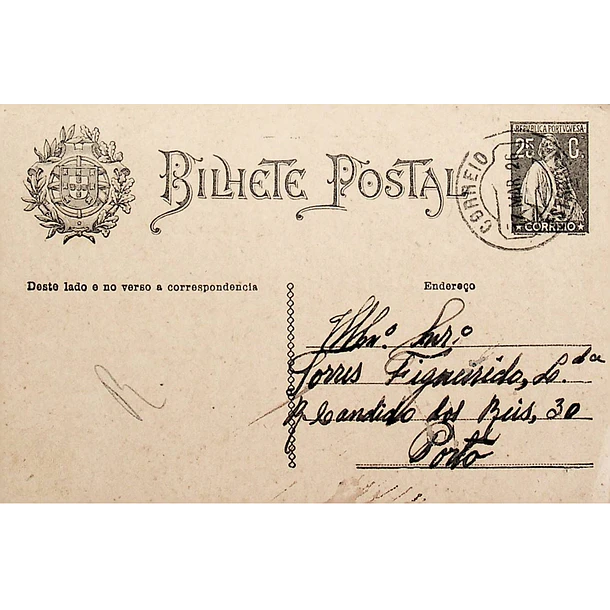 BILHETE POSTAL
REPUBLICA PORTUGUESA
25 C.
CORREIO
CORREIO
MAR 26
Deste lado e no verso a correspondencia
Endereço
R.
Illmº. Snr.º
Torres Figueirido, L.da
R Candido dos Reis, 30
Porto